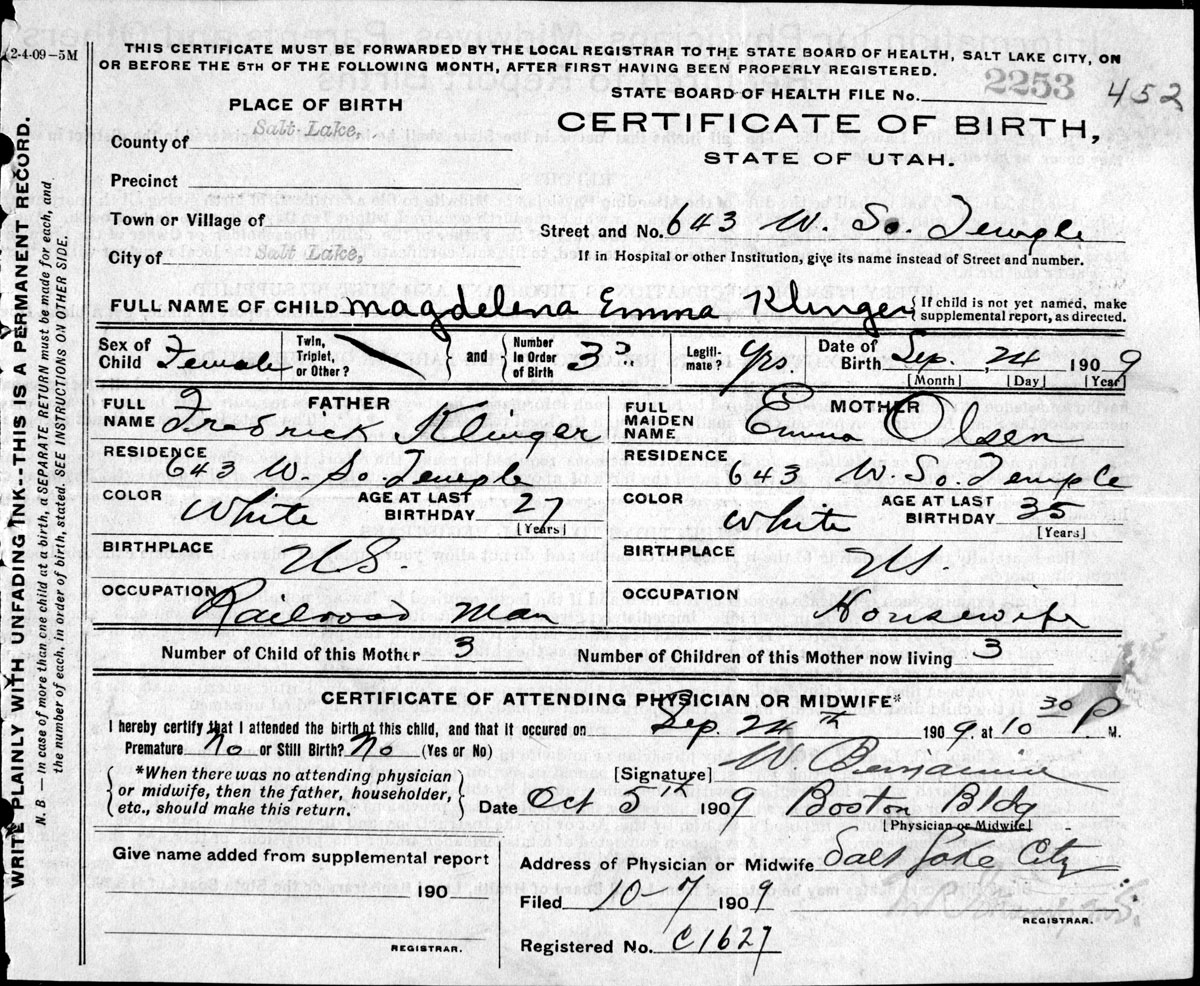 2-4-09-5M
THIS CERTIFICATE MUST BE FORWARDED BY THE LOCAL REGISTRAR TO THE STATE BOARD OF HEALTH, SALT LAKE CITY, ON
OR BEFORE THE 5TH OF THE FOLLOWING MONTH, AFTER FIRST HAVING BEEN PROPERLY REGISTERED.
STATE BOARD OF HEALTH FILE No. 2253 452
PLACE OF BIRTH
CERTIFICATE OF BIRTH,
STATE OF UTAH.
County of Salt Lake,
Precinct
Town or Village of
Street and No. 643 W. So. Temple
City of Salt Lake,
If in Hospital or other Institution, give its name instead of Street and number.
FULL NAME OF CHILD Magdelena Emma Klinger { If child is not yet named, make supplemental report, as directed.
Sex of Child Female Twin, Triplet, or Other? } and { Number in Order of Birth 3 Legitimate? Yrs. Date of Birth Sep. 24 1909
[Month] [Day] [Year]
FATHER
FULL NAME Fredrick Klinger
RESIDENCE 643 W. So. Temple
COLOR White AGE AT LAST BIRTHDAY 27
[Years]
BIRTHPLACE U.S.
OCCUPATION Railroad Man
MOTHER
FULL MAIDEN NAME Emma Olsen
RESIDENCE 643 W. So. Temple
COLOR White AGE AT LAST BIRTHDAY 35
[Years]
BIRTHPLACE U.S.
OCCUPATION Housewife
Number of Child of this Mother 3 Number of Children of this Mother now living 3
CERTIFICATE OF ATTENDING PHYSICIAN OR MIDWIFE*
I hereby certify that I attended the birth of this child, and that it occured on Sep. 24th 1909. at 10 30 P M.
Premature No or Still Birth? No (Yes or No)
{ *When there was no attending physician
or midwife, then the father, householder,
etc., should make this return. }
[Signature] W Benjamin
Date Oct 5th 1909 Boston Bldg
[Physician or Midwife]
Give name added from supplemental report
190
REGISTRAR.
Address of Physician or Midwife Salt Lake City
Filed 10-7 1909
REGISTRAR.
Registered No. C1627
WRITE PLAINLY WITH UNFADING INK--THIS IS A PERMANENT RECORD.
N. B. — In case of more than one child at a birth, a SEPARATE RETURN must be made for each, and
the number of each, in order of birth, stated. SEE INSTRUCTIONS ON OTHER SIDE.